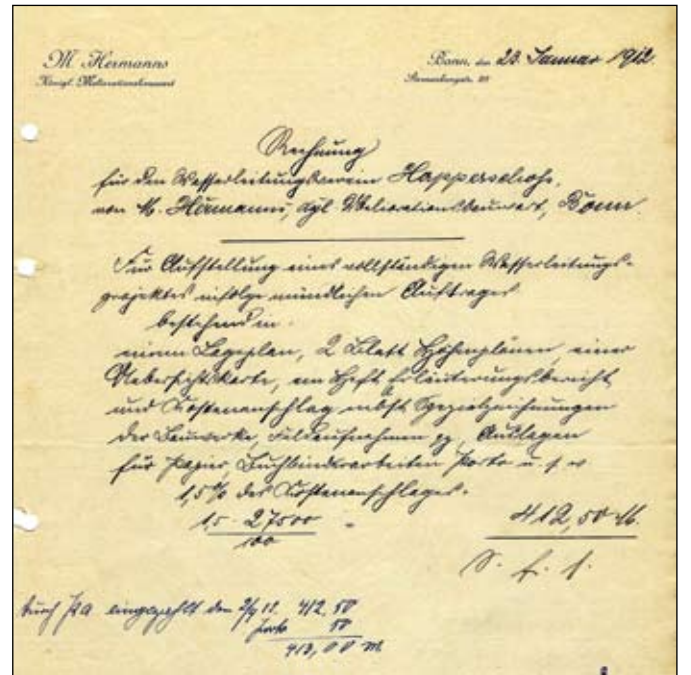 M. Hermanns
Königl. Meliorationsbauwart
Bonn, den 23. Januar 1912.
Rechnung
für den Wasserleitungsverein Happerschoß,
von M. Hermanns, kgl. Meliorationsbauwart, Bonn.
Für Aufstellung eines vollständigen Wasserleitungs-
projektes infolge mündlichen Auftrages
bestehend in:
einem Lageplan, 2 Blatt Höhenplänen, einer
Uebersichtskarte, ein Heft Erläuterungsbericht
und Kostenanschlag nebst Spezialzeichnungen
der Bauwerke, Feldaufnahmen pp, Auslagen
für Papier, Buchbinderarbeiten Porto u. s. w.
1,5% des Kostenanschlages.
1,5 · 27500 = 412,50 M.
100
S. E. S.
durch eingezahlt den 412,50
Porto 50
413,00 M